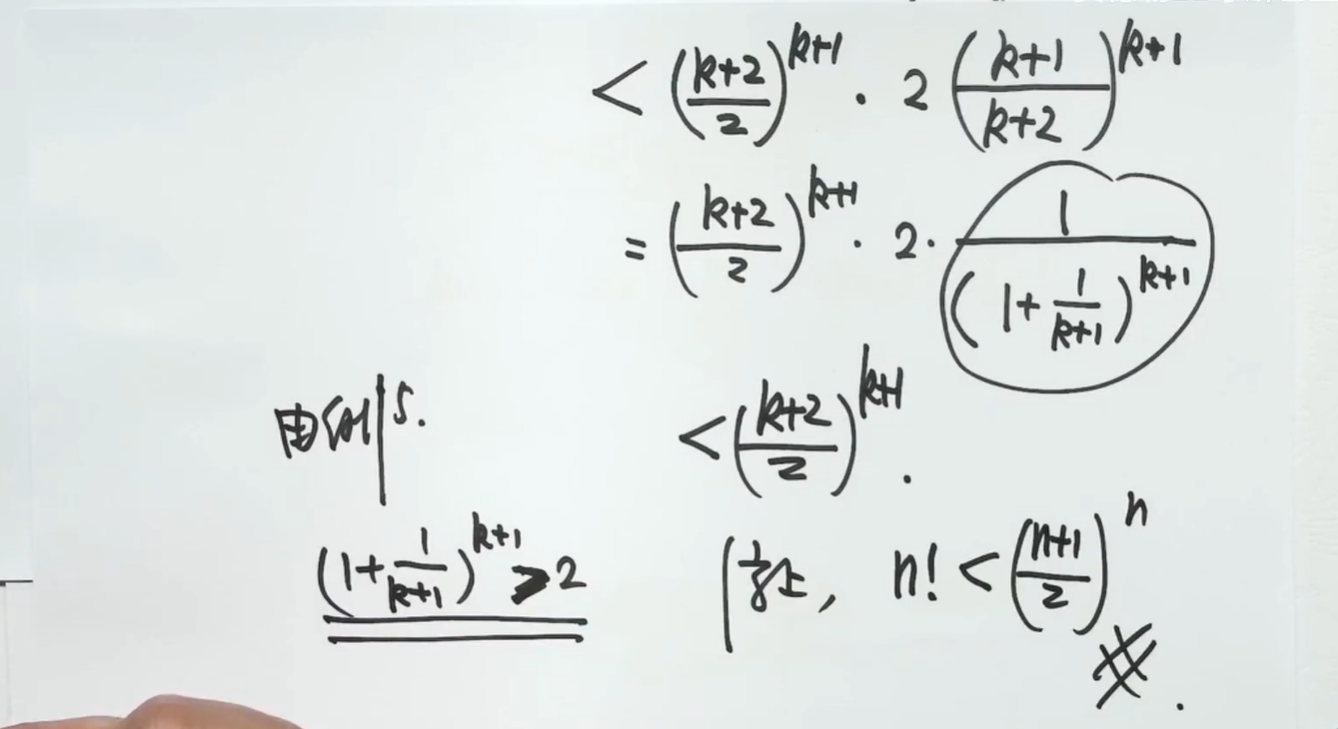 < (k+2/2)^{k+1} · 2 (k+1/k+2)^{k+1}
= (k+2/2)^{k+1} · 2 · 1/(1+1/k+1)^{k+1}
< (k+2/2)^{k+1} .
由例 5.
(1+1/k+1)^{k+1} > 2
n! < (n+1/2)^n
※ .